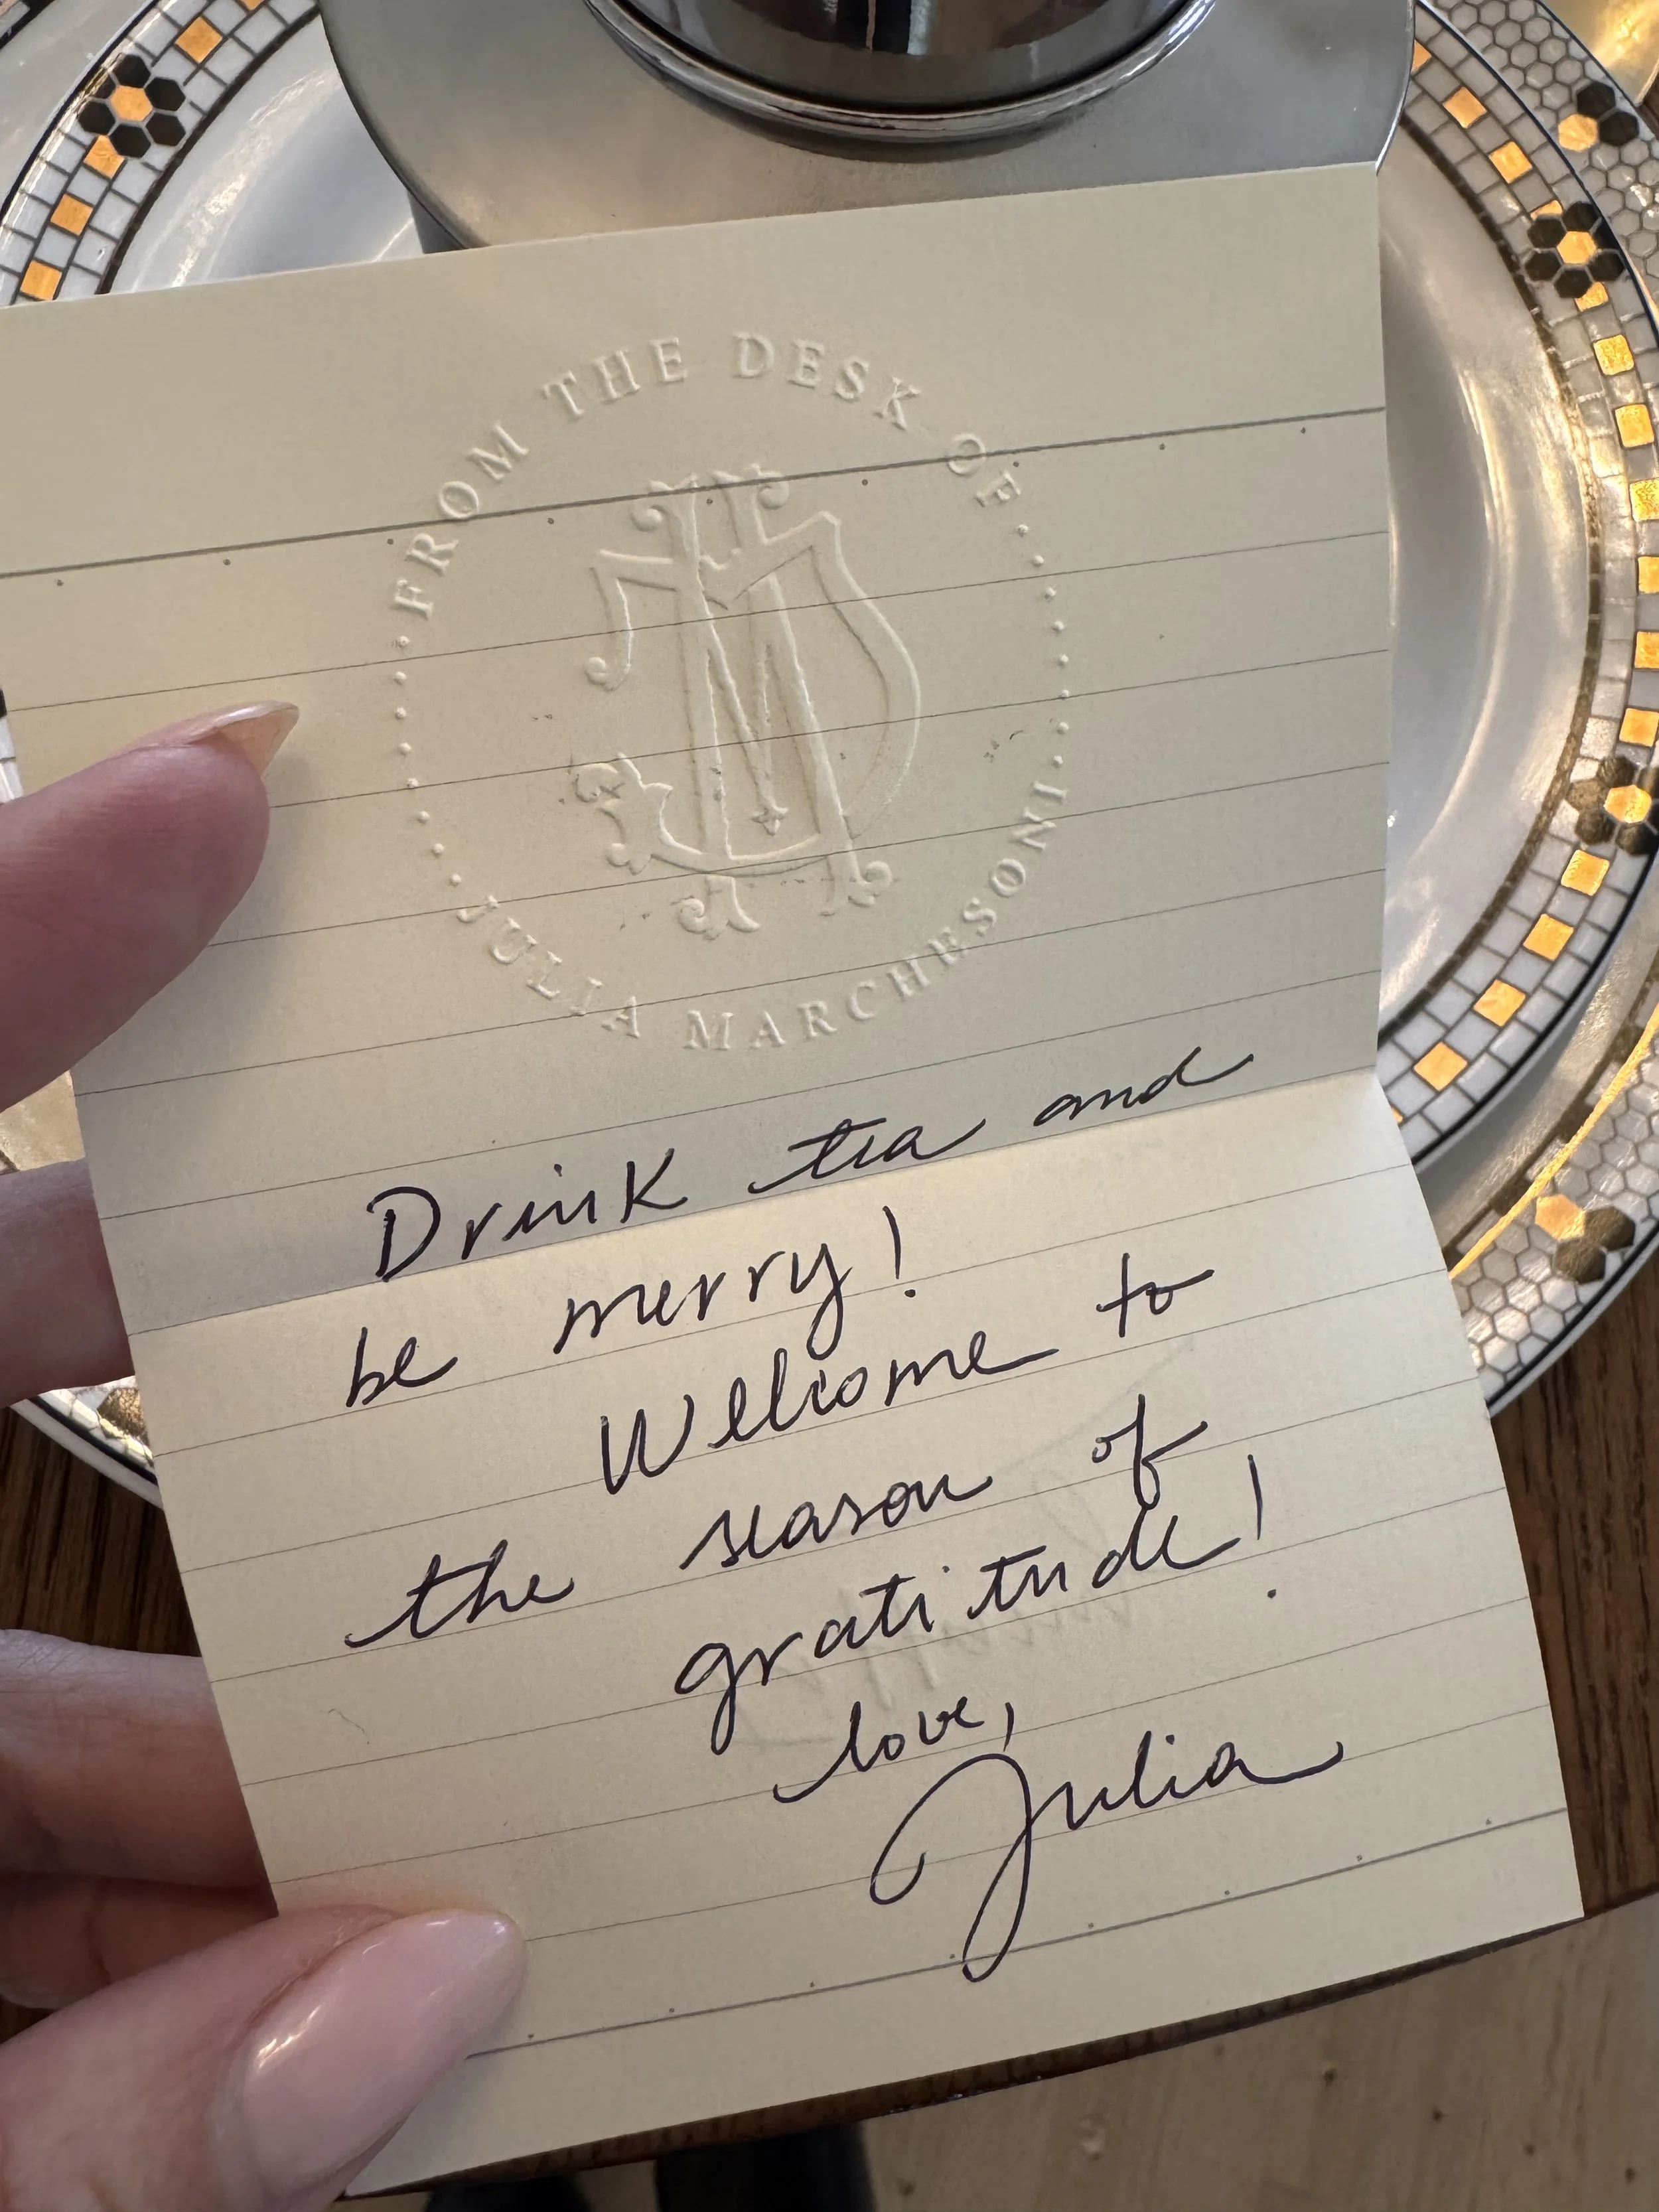 FROM THE DESK OF
JULIA MARCHESONI
Drink tea and
be merry!
Welcome to
the season of
gratitude!
love,
Julia